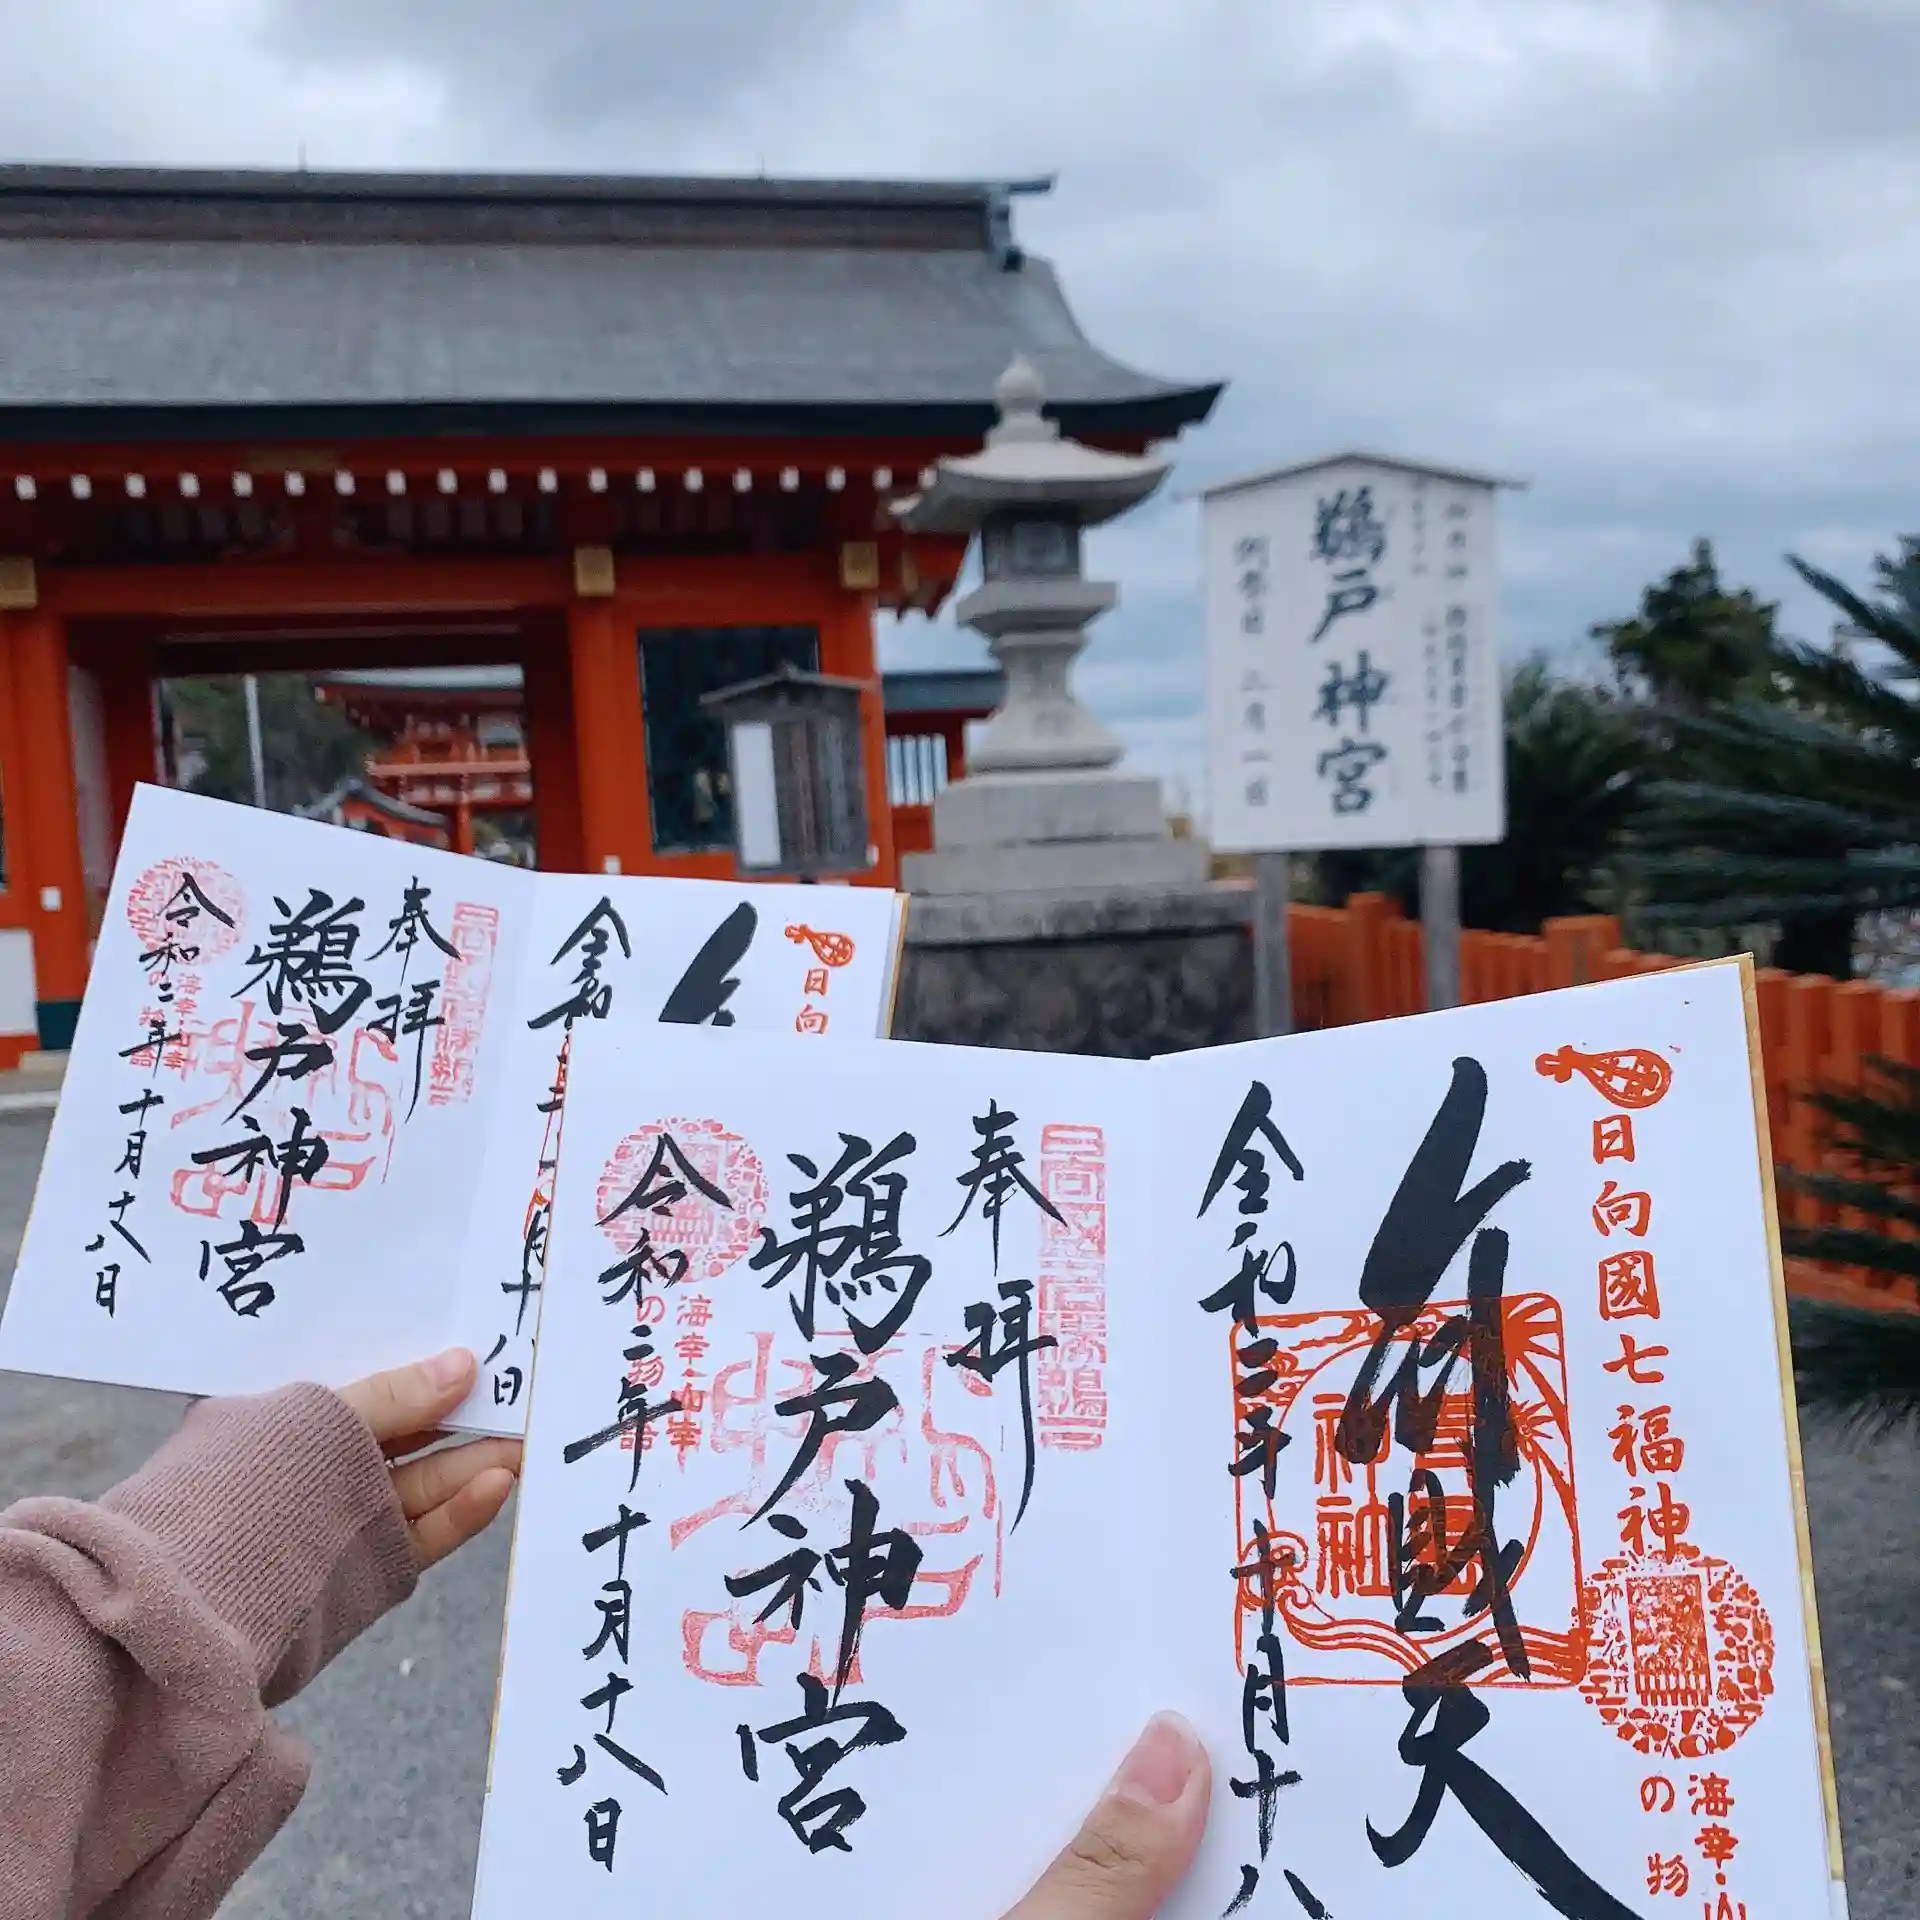 鵜戸神宮
例祭日 二月一日
奉拝
鵜戸神宮
令和二年十月十八日
海幸・山幸
の物語
日向
令和
奉拝
鵜戸神宮
令和二年十月十八日
海幸・山幸
の物語
日向國七福神
弁財天
青島
神社
令和二年十月十八
海幸・山
の物